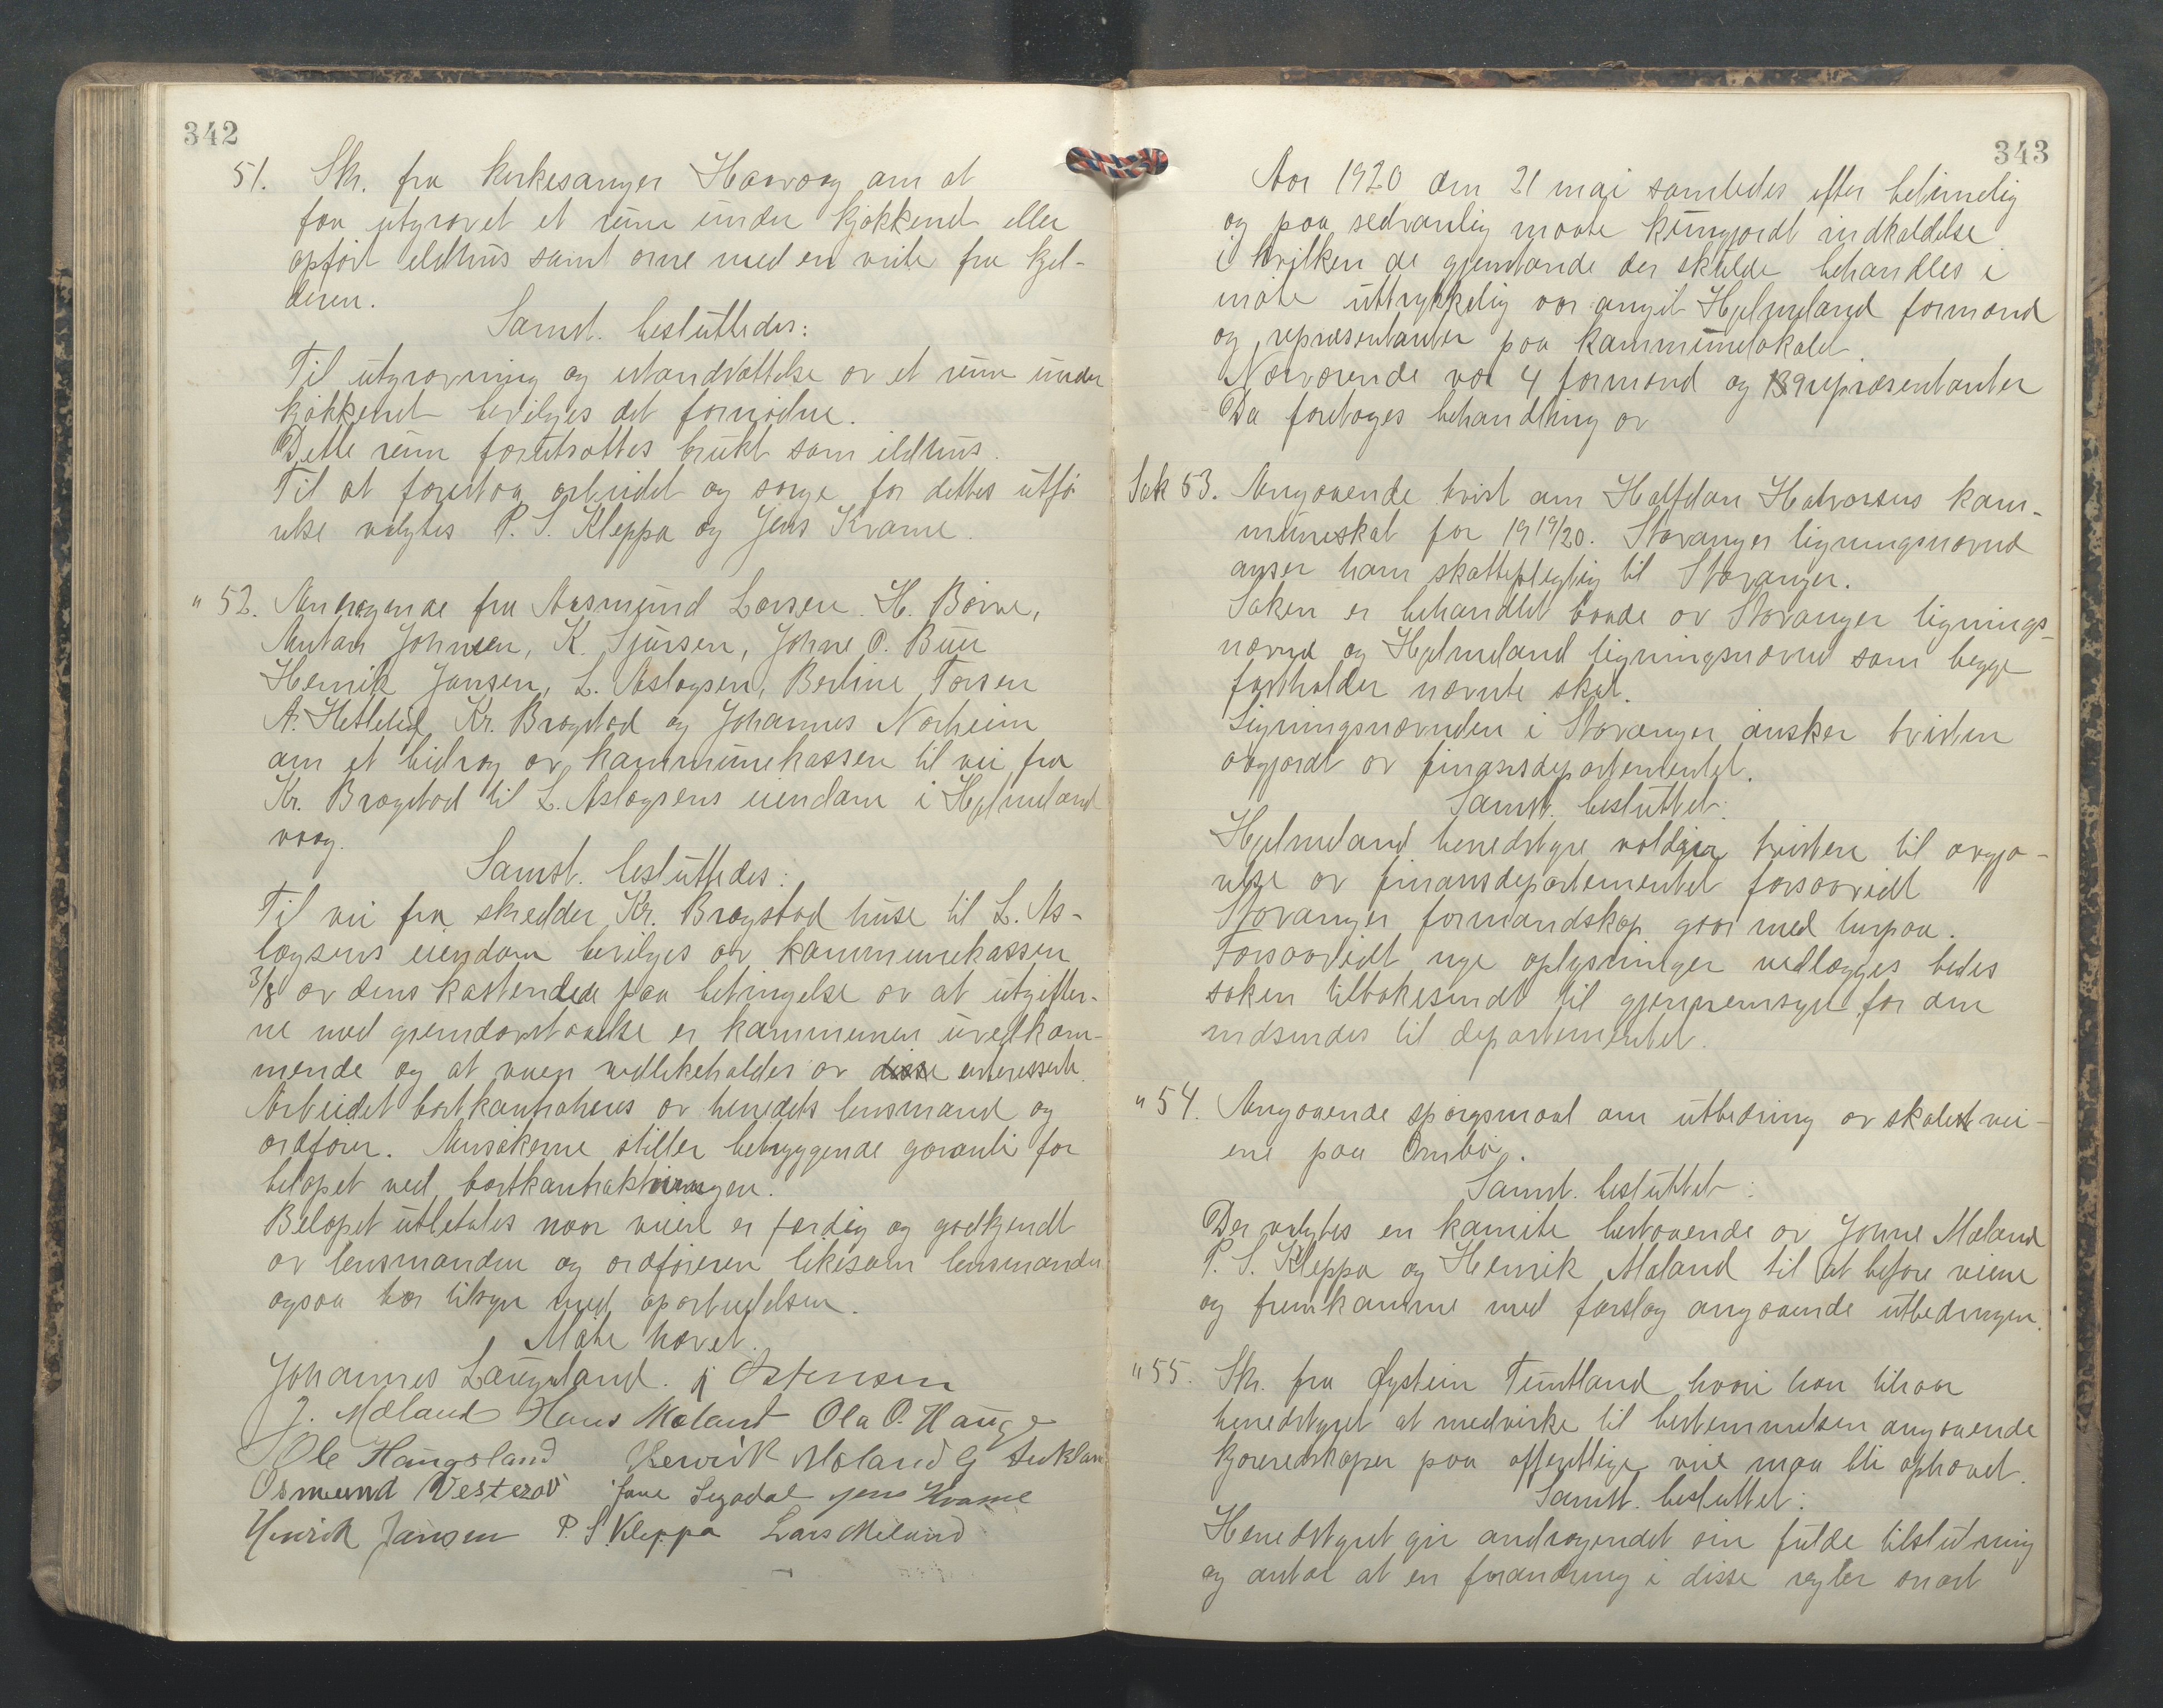 342
51. Skr. fra kirkesanger Haavaag om at
faa utgravet et rum under kjøkkenet eller
opført ildhus samt ovne med en vite fra kjel-
deren.
Samst. besluttedes:
Til utgravning og istandsættelse av et rum under
kjøkkenet bevilges det fornødne.
Dette rum forutsættes brukt som ildhus.
Til at forestaa arbeidet og sørge for dettes utfø
relse valgtes P. S. Kleppa og Jens Kvame.
" 52. Andragende fra Aasmund Larsen. H. Børve,
Anton Johnsen, K. Sjursen, Johne O. Buer
Henrik Jansen, L. Aslagsen, Bertine Torsen
A. Hetlelid, Kr. Bragstad og Johannes Norheim
om et bidrag av kommunekassen til vei fra
Kr. Bragstad til L. Aslagsens eiendom i Hjelmeland
vaag.
Samst. besluttedes:
Til vei fra skrædder Kr. Bragstad huse til L. As-
lagsens eiendom bevilges av kommunekassen
3/8 av dens kostende paa betingelse av at utgifter-
ne med grundavstaaelse er kommunen uvedkom-
mende og at veien vedlikeholdes av disse interesserte.
Arbeidet bortkontraheres av herredets lensmand og
ordfører. Ansøkerne stiller betryggende garanti for
beløpet ved bortkontraktningen.
Beløpet utbetales naar veien er færdig og godkjendt
av lensmanden og ordføreren likesom lensmanden
ogsaa har tilsyn med oparbeidelsen.
Møte hævet.
Johannes Laugaland. J Østensen
J. Mæland Hans Mæland Ola O. Hauge
Ole Haugsland Henrik Møland G
Osmund Vesterø Jone Segadal Jens Kvame
Henrik Jansen P. S. Kleppa Lars Meland
343
Aar 1920 den 21 mai samledes efter betimelig
og paa sedvanlig maate kungjordt indkaldelse
i hvilken de gjenstande der skulde behandles i
møte uttrykkelig var angit Hjelmeland formænd
og repræsentanter paa kommunelokalet.
Nærværende var 4 formænd og 9 repræsentanter
Da foretoges behandling av
Sak 53. Angaaende tvist om Halfdan Halvorsens kom-
muneskat for 1919/20. Stavanger ligningsnævnd
anser ham skattepligtig til Stavanger.
Saken er behandlet baade av Stavanger lignings-
nævnd og Hjelmeland ligningsnævnd som begge
fastholder nævnte skat.
Ligningsnævnden i Stavanger ønsker tvisten
avgjordt av finansdepartementet.
Samst. besluttet:
Hjelmeland herredstyre voldgir tvisten til avgjø-
relse av finansdepartementet forsaavidt
Stavanger formandskap gaar med herpaa.
Forsaavidt nye oplysninger vedlægges bedes
saken tilbakesendt til gjennemsyn før den
indsendes til departementet.
" 54. Angaaende spørgsmaal om utbedring av skolevei-
ene paa Ombo.
Samst. besluttet:
Der valgtes en komite bestaaende av Johne Mæland
P. S. Kleppa og Henrik Maland til at befare veiene
og fremkomme med forslag angaaende utbedringen.
" 55. Skr. fra Øystein Tuntland hvori han tilraar
herredstyret at medvirke til bestemmelsen angaaende
kjøreredskaper paa offentlige veie maa bli ophævet.
Samst. besluttet:
Herredstyret gir andragendet sin fulde tilslutning
og antar at en forandring i disse regler snart